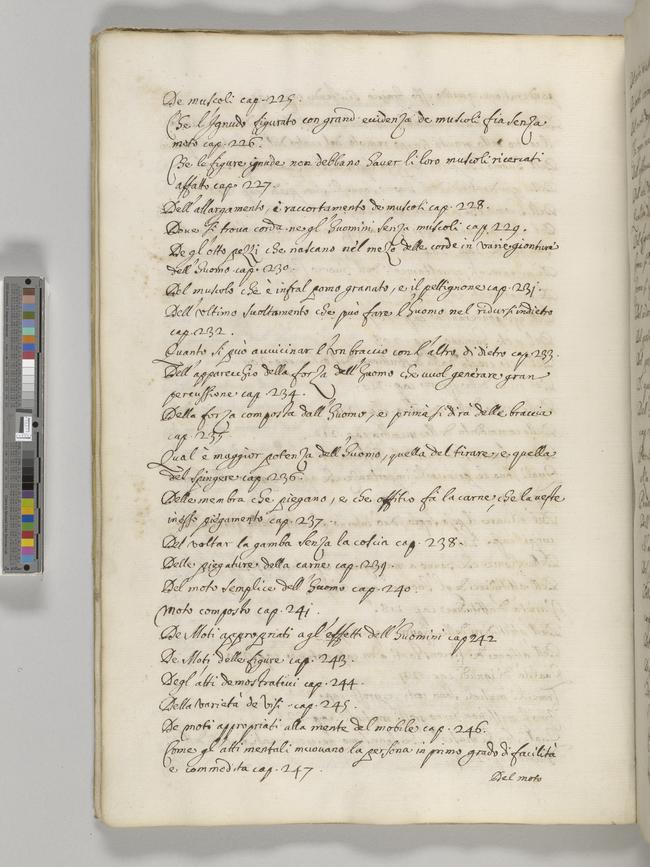 De muscoli cap. 225.
Che l'Ignudo figurato con grand' euidenza de muscoli fia senza
moto cap. 226.
Che le figure ignude non debbano hauer li loro muscoli ricercati
affatto cap. 227.
Dell'allargamento, è raccortamento de muscoli cap. 228.
Doue si troua corda ne gl'huomini senza muscoli cap. 229.
De gl'otto pezzi che nascano nel mezo delle corde in varie gionture
dell'huomo cap. 230.
Del muscolo che è infral pomo granato, e il pettignone cap. 231.
Dell'vltimo suoltamento che può fare l'huomo nel ridursi indietro
cap. 232.
Quanto si può auuicinar l'vn braccio con l'altro di dietro cap. 233.
Dell'apparecchio della forza dell'huomo che vuol generare gran
percussione cap. 234.
Della forza composta dall'huomo, e prima si dirà delle braccia
cap. 235
Qual'è maggior potenza dell'huomo, quella del tirare, e quella
del spingere cap. 236.
Delle membra che piegano, e che offitio fà la carne, che la veste
in esso piegamento cap. 237.
Del voltar la gamba senza la coscia cap. 238.
Delle piegature della carne cap. 239.
Del moto semplice dell'huomo cap. 240.
Moto composto cap. 241.
De Moti appropriati agl'effetti dell'huomini cap 242
De Moti delle figure cap. 243.
Degl'atti demostratiui cap. 244.
Della varietà de visi cap. 245.
De moti appropriati alla mente del mobile cap. 246.
Come gl'atti mentali muouano la persona in primo grado di facilità
e commodita cap. 247.
Del moto